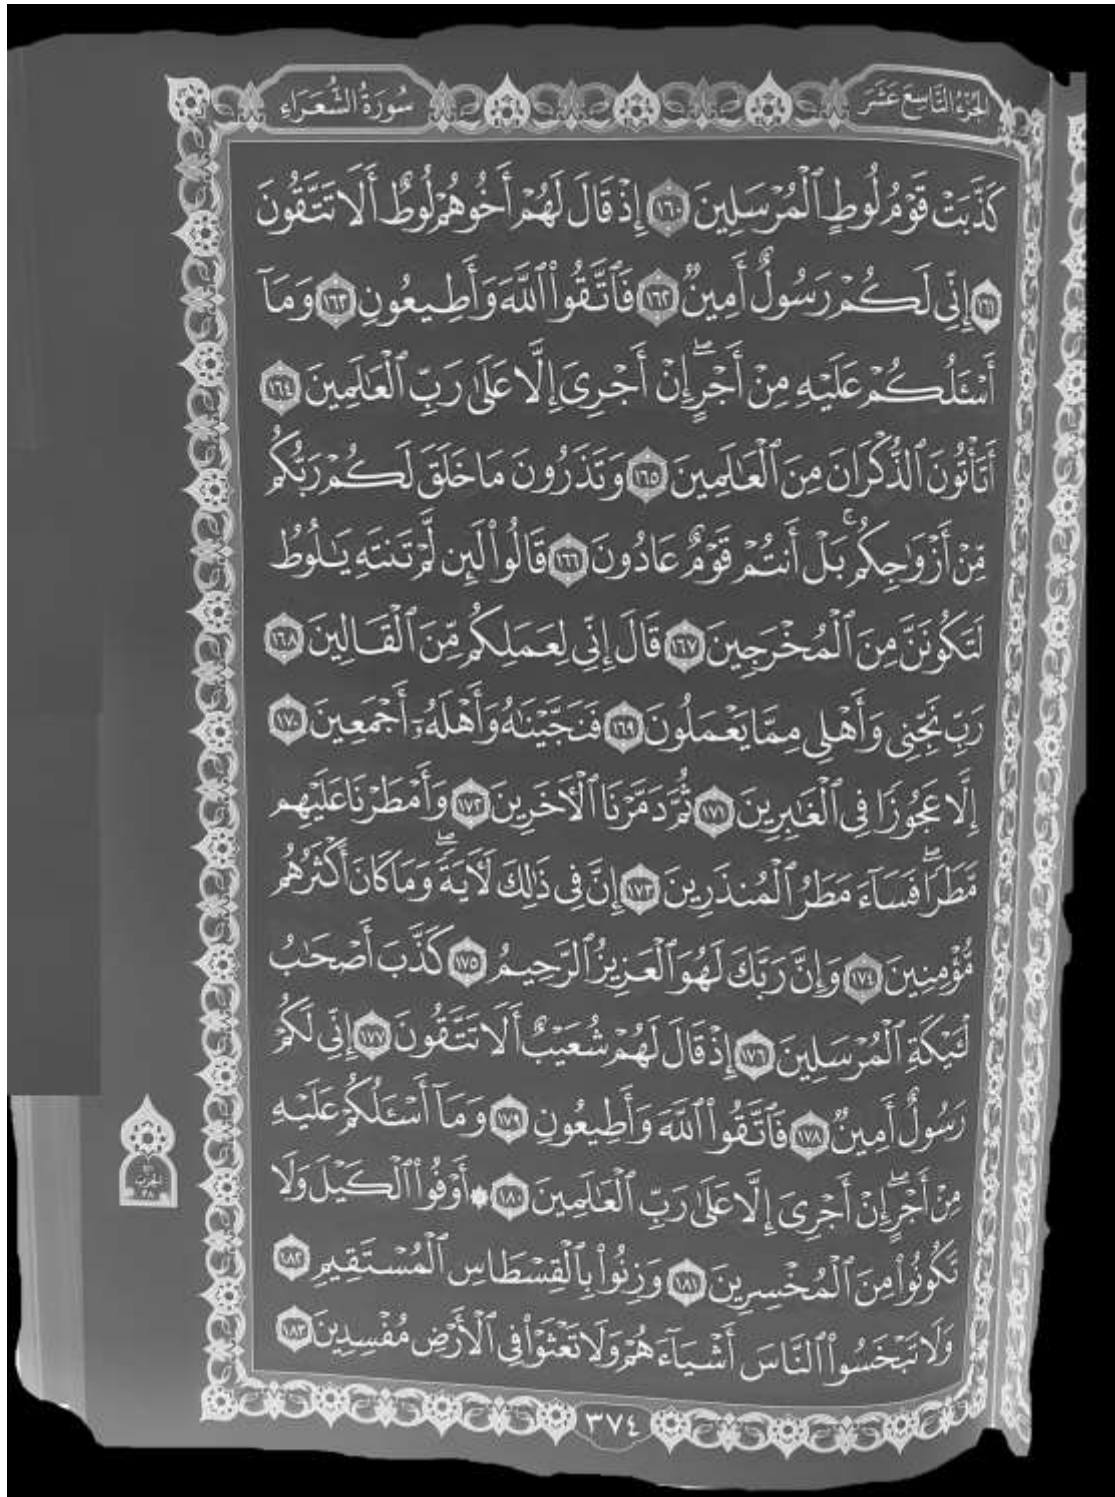 الجزء التاسع عشر
سورة الشعراء
كَذَّبَتْ قَوْمُ لُوطٍ ٱلْمُرْسَلِينَ ١٦٠ إِذْ قَالَ لَهُمْ أَخُوهُمْ لُوطٌ أَلَا تَتَّقُونَ
١٦١ إِنِّى لَكُمْ رَسُولٌ أَمِينٌ ١٦٢ فَٱتَّقُوا۟ ٱللَّهَ وَأَطِيعُونِ ١٦٣ وَمَآ
أَسْـَٔلُكُمْ عَلَيْهِ مِنْ أَجْرٍ ۖ إِنْ أَجْرِىَ إِلَّا عَلَىٰ رَبِّ ٱلْعَـٰلَمِينَ ١٦٤
أَتَأْتُونَ ٱلذُّكْرَانَ مِنَ ٱلْعَـٰلَمِينَ ١٦٥ وَتَذَرُونَ مَا خَلَقَ لَكُمْ رَبُّكُم
مِّنْ أَزْوَٰجِكُم ۚ بَلْ أَنتُمْ قَوْمٌ عَادُونَ ١٦٦ قَالُوا۟ لَئِن لَّمْ تَنتَهِ يَـٰلُوطُ
لَتَكُونَنَّ مِنَ ٱلْمُخْرَجِينَ ١٦٧ قَالَ إِنِّى لِعَمَلِكُم مِّنَ ٱلْقَالِينَ ١٦٨
رَبِّ نَجِّنِى وَأَهْلِى مِمَّا يَعْمَلُونَ ١٦٩ فَنَجَّيْنَـٰهُ وَأَهْلَهُۥٓ أَجْمَعِينَ ١٧٠
إِلَّا عَجُوزًا فِى ٱلْغَـٰبِرِينَ ١٧١ ثُمَّ دَمَّرْنَا ٱلْـَٔاخَرِينَ ١٧٢ وَأَمْطَرْنَا عَلَيْهِم
مَّطَرًا ۖ فَسَآءَ مَطَرُ ٱلْمُنذَرِينَ ١٧٣ إِنَّ فِى ذَٰلِكَ لَـَٔايَةً ۖ وَمَا كَانَ أَكْثَرُهُم
مُّؤْمِنِينَ ١٧٤ وَإِنَّ رَبَّكَ لَهُوَ ٱلْعَزِيزُ ٱلرَّحِيمُ ١٧٥ كَذَّبَ أَصْحَـٰبُ
لْـَٔيْكَةِ ٱلْمُرْسَلِينَ ١٧٦ إِذْ قَالَ لَهُمْ شُعَيْبٌ أَلَا تَتَّقُونَ ١٧٧ إِنِّى لَكُمْ
رَسُولٌ أَمِينٌ ١٧٨ فَٱتَّقُوا۟ ٱللَّهَ وَأَطِيعُونِ ١٧٩ وَمَآ أَسْـَٔلُكُمْ عَلَيْهِ
مِنْ أَجْرٍ ۖ إِنْ أَجْرِىَ إِلَّا عَلَىٰ رَبِّ ٱلْعَـٰلَمِينَ ١٨٠ ۞ أَوْفُوا۟ ٱلْكَيْلَ وَلَا
تَكُونُوا۟ مِنَ ٱلْمُخْسِرِينَ ١٨١ وَزِنُوا۟ بِٱلْقِسْطَاسِ ٱلْمُسْتَقِيمِ ١٨٢
وَلَا تَبْخَسُوا۟ ٱلنَّاسَ أَشْيَآءَهُمْ وَلَا تَعْثَوْا۟ فِى ٱلْأَرْضِ مُفْسِدِينَ ١٨٣
الحزب
٣٨
٣٧٤